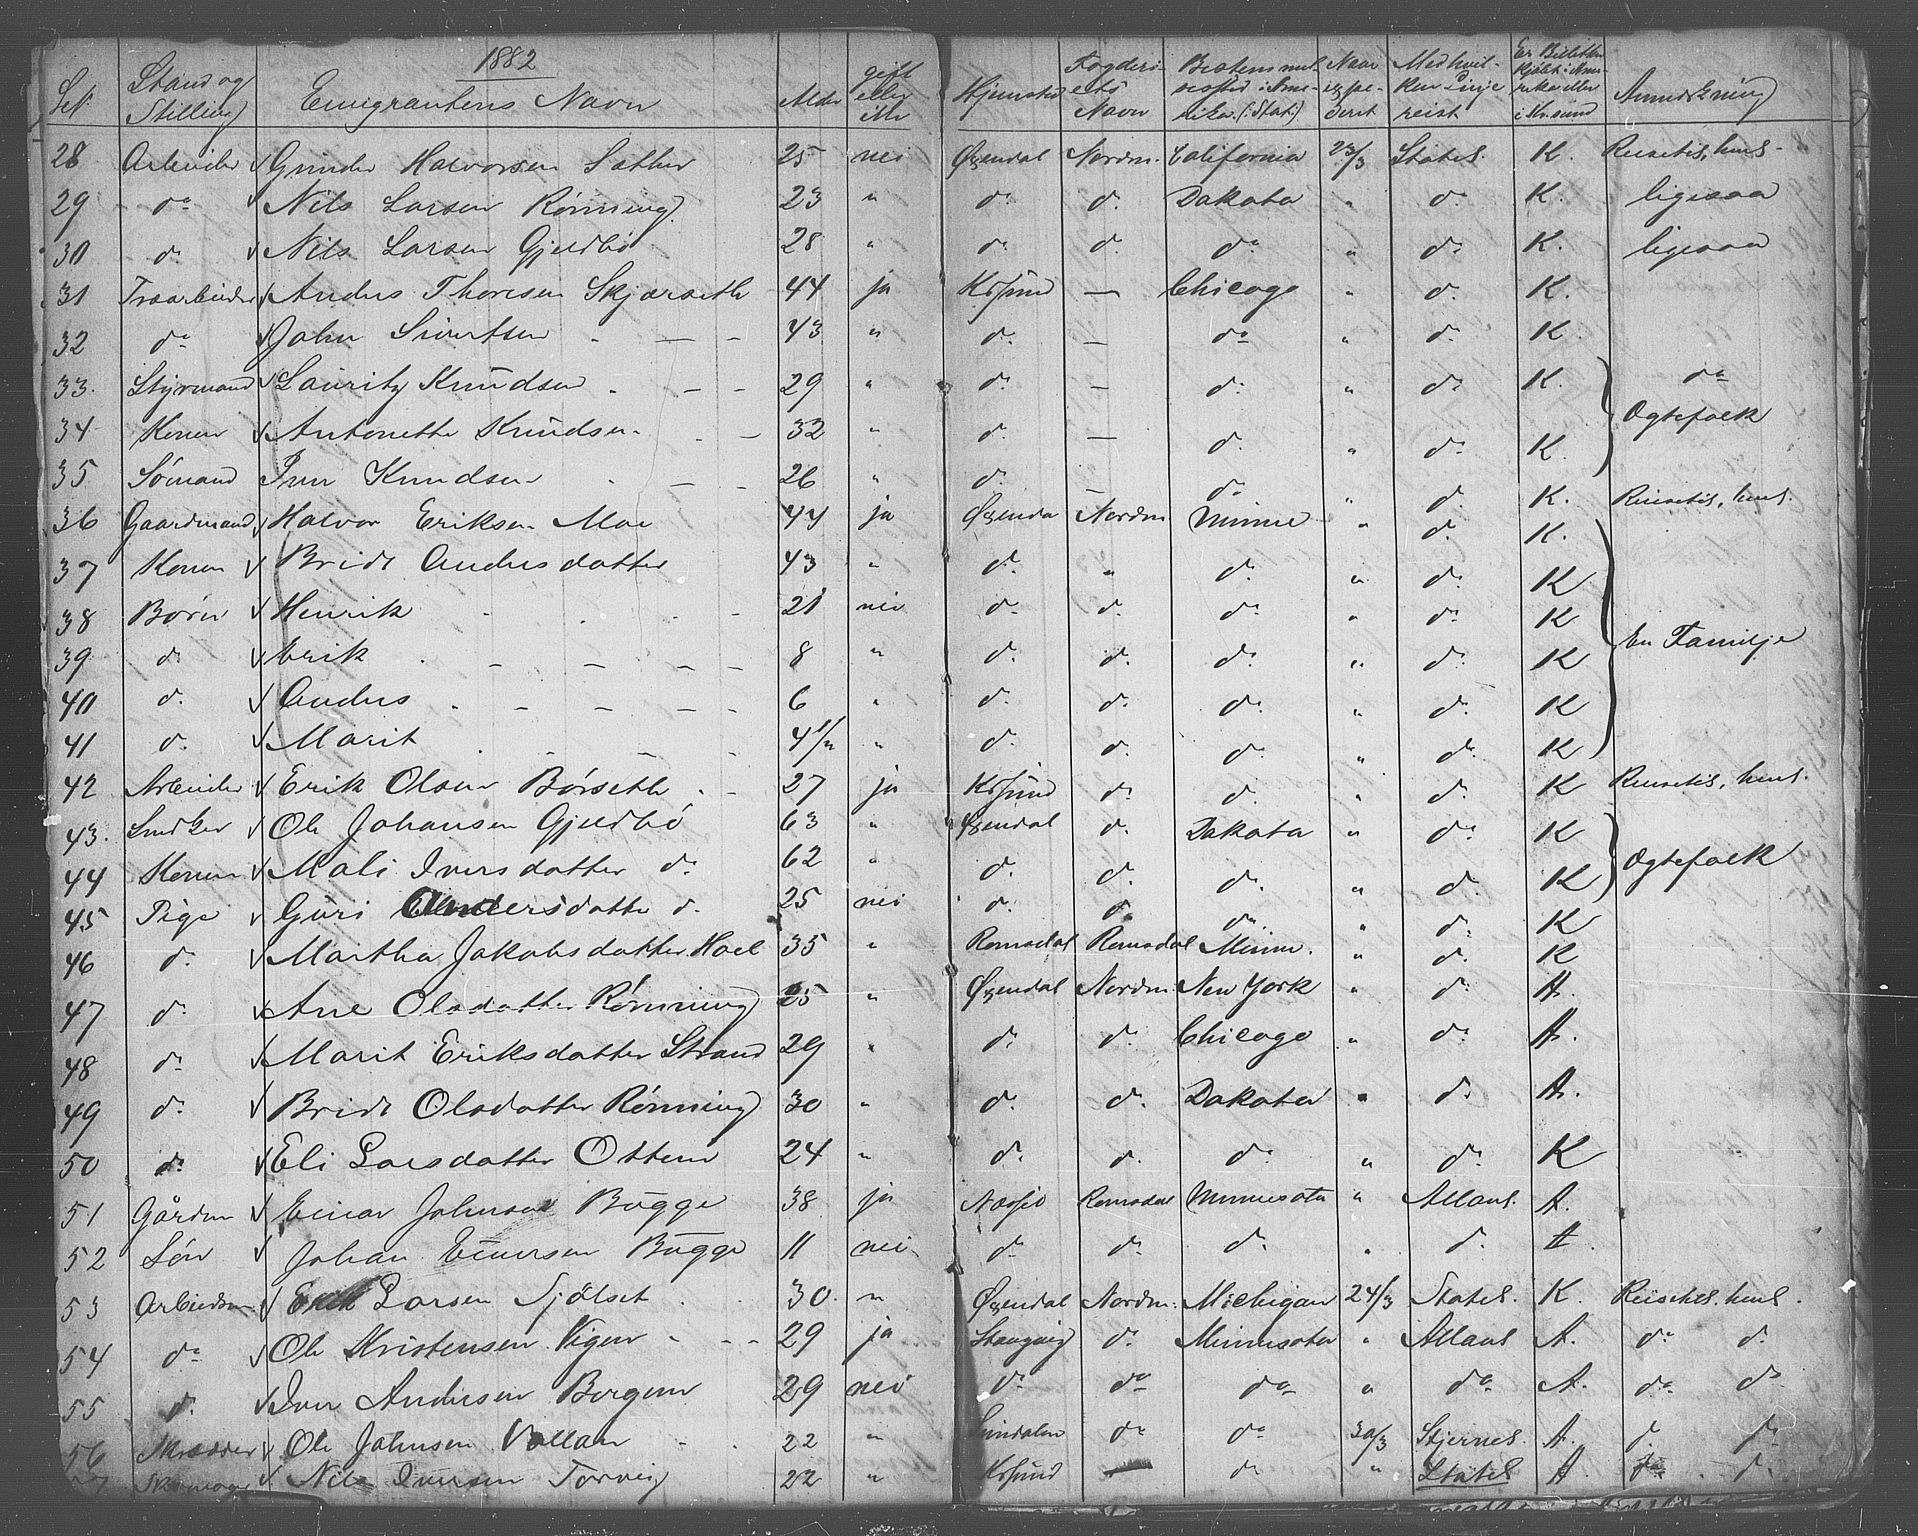 1882
Stand og Stilling Emigrantens Navn Alder gift eller Ei Hjemsted Fogderiets Navn Bestemmelsessted i Amerika (: Stat :) Naar expederet Med hvilken Linje reist Er Billetten kjøbt i Amerika eller i Kr.sund Anmærkning
28 Arbeider √ Gunder Halvorsen Sæther 25 nei Øxendal Nordm. California 23/3 Statsl. K. Reisetil. hens.
29 do √ Nils Larsen Rønning 23 " do d. Dakota " d. K. ligesaa
30 d. √ Nils Larsen Gjeldbø 28 " do d. do " do K. ligesaa
31 Træarbeider √ Anders Thoresen Skjørseth 44 ja Krsund — Chicago " d. K.
32 do √ John Sivertsen . — — 43 " d. — do " d. K.
33. Styrmand √ Lauritz Knudsen . — — 29 " d. — d. " d. K. do
34 Konen √ Antonette Knudsen . — 32 " d. — d. " do K. Ægtefolk
35 Sømand Iver Knudsen . — — 26 " d. do " d. K. Reisetil. hens.
36 Gaardmand √ Halvor Eriksen Moe 44 ja Øxenda Nordm Minne " d. K.
37 Konen √ Brit Andersdatter 43 " d. " d. " d. K
38 Børn √ Henrik 21 nei d. d. d. " d. K
39 d. √ Erik . — — — — 8 " d. d. d. " d. K En Familje
40 d. √ Anders . — — — — 6 " d. d. d. " d. K
41 d. √ Marit . — — — 4 1/2 " d. d. d. " d. K
42 Arbeider √ Erik Olsen Børseth . - 27 ja Krsund d. d. " d. K Reisetil. hens.
43. Snedker √ Ole Johansen Gjeldbø 63 " Øxendal d. Dakota " d. K
44 Konen √ Mali Iversdatter do 62 " d. d. d. " d. K Ægtefolk
45 Pige √ Guri Andersdatter d. 25 nei d. d. do " d. K
46 d. √ Martha Jakobsdatter Hoel 35 " Romsdal Romsdal Minne. " d. K
47 d. √ Ane Olsdatter Rønning 35 " Øxendal Nordm New York " d. A.
48 d. √ Marit Eriksdatter Strand 29 " d. d. Chicago " do A.
49 d. √ Brit Olsdatter Rønning 30 " d. d. Dakota " d. A.
50 d. √ Eli Larsdatter Ottem 24 " d. d. do " d. K
51 Gårdm √ Einar Johnsen Bugge 38 ja Næsje Romsdal Minnesota " Atlant. A.
52 Søn √ Johan Einersen Bugge 11 nei do d. d. " d. A
53 Arbeidsm. √ Erik Larsen Sjølset . 30. " Øxendal Nordm. Michigan 24/3 Statsl. K. Reisetil. hens.
54 do √ Ole Kristensen Vigen - - - 29 ja Stangvig do Minnesota " Atlant A. do d.
55 d. √ Iver Andersen Bergem 29 nei do do do " do A. do do
56 Skrædder √ Ole Johnsen Vollan - . 22 " Sundalen do do 30/3 Stjernel. A. d. do
√ Nils Iversen Torvig 22 " Krsund — do " Statsl A d. d.